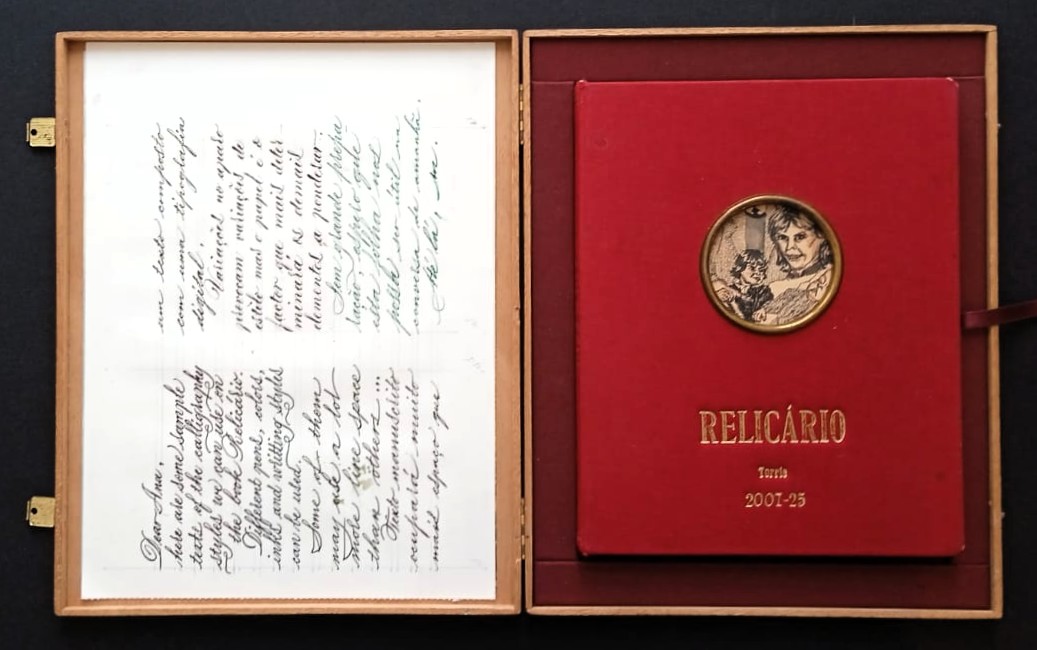 Dear Ana,
here are some sample
texts of the calligraphy
styles we can use on
the book Relicário.
Different pens, colors,
inks and writting styles
can be used.
Some of them
may use a lot
more space
than others ...
Texto manuscrito
ocupará muito
mais espaço que
um texto composto
com uma tipografia
digital.
Variações no aparo
provocam variações de
estilo mas o papel é o
factor que mais deter-
minará os demais
elementos a ponderar.
Sem grande prepa-
ração espero que
esta folha nos
possa ser útil na
conversa de amanhã.
Até lá,
RELICÁRIO
Torrie
2001-25